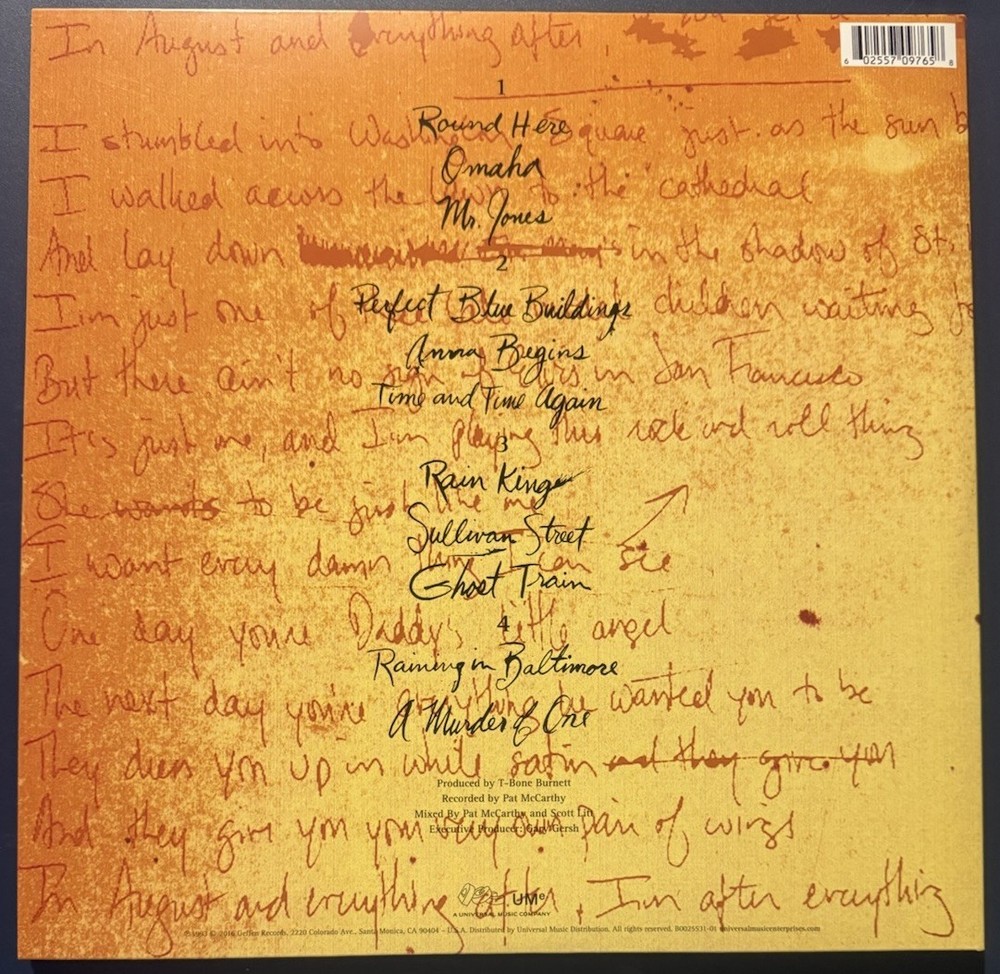 In August and everything after,
6 02557 09765 8
1
I stumbled into Washington Square just as the sun b
Round Here
Omaha
I walked across the lawn to the cathedral
Mr. Jones
And lay down in the shadow of St.
2
I'm just one of children waiting fo
Perfect Blue Buildings
Anna Begins
But there ain't no sign of in San Francisco
Time and Time Again
It's just me, and I'm playing this rock and roll thing
3
Rain King
She wants to be just like me
Sullivan Street
I want every damn thing I can see
Ghost Train
One day you're Daddy's little angel
4
Raining in Baltimore
The next day you're everything he wanted you to be
A Murder of One
They dress you up in white satin and they give you
Produced by T-Bone Burnett
Recorded by Pat McCarthy
Mixed By Pat McCarthy and Scott Litt
And they give you your very own pair of wings
Executive Producer: Gary Gersh
In August and everything after, I'm after everything
UMe
A UNIVERSAL MUSIC COMPANY
© 2016 Geffen Records, 2220 Colorado Ave., Santa Monica, CA 90404 – U.S.A. Distributed by Universal Music Distribution. All rights reserved. B0025531-01 universalmusicenterprises.com